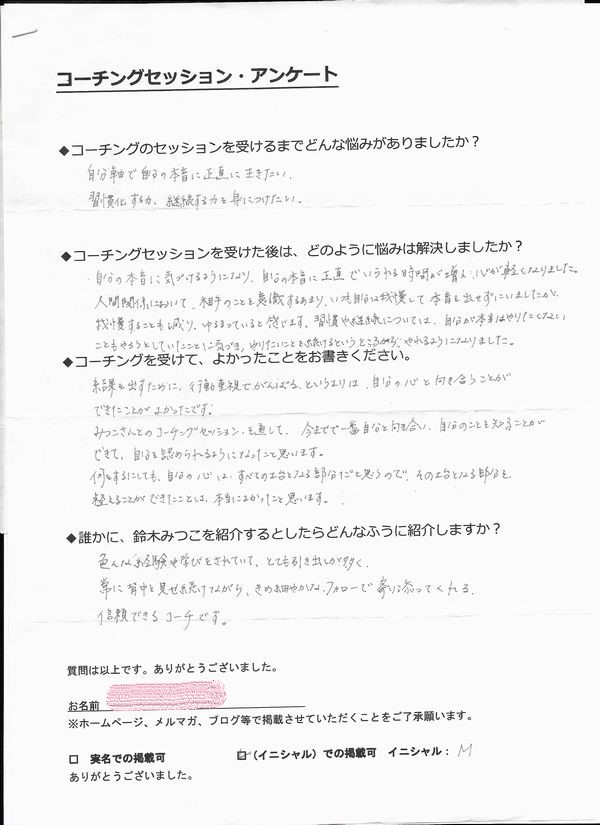 コーチングセッション・アンケート
◆コーチングのセッションを受けるまでどんな悩みがありましたか？
自分軸で自分の本音に正直に生きたい。
習慣化する力、継続する力を身につけたい。
◆コーチングセッションを受けた後は、どのように悩みは解決しましたか？
自分の本音に気づけるようになり、自分の本音に正直でいられる時間が増え、心が軽くなりました。
人間関係において、相手のことを意識するあまり、いつも自分は我慢して本音を出せずにいましたが、
我慢することも減り、ゆるまっていると感じます。習慣や継続については、自分が本当はやりたくない
こともやろうとしていたことに気づき、やりたいことを続けるというところから、やれるようになりました。
◆コーチングを受けて、よかったことをお書きください。
結果を出すために、行動重視でがんばる、というよりは、自分の心と向き合うことが
できたことがよかったです。
みつこさんとのコーチングセッションを通して、今までで一番自分と向き合い、自分のことを知ることが
できて、自分を認められるようになったと思います。
何をするにしても、自分の心は、すべての土台となる部分だと思うので、その土台となる部分を
整えることができたことは、本当によかったと思います。
◆誰かに、鈴木みつこを紹介するとしたらどんなふうに紹介しますか？
色んな経験や学びをされていて、とても引き出しが多く、
常に背中を見せ続けながら、きめ細やかなフォローで寄り添ってくれる
信頼できるコーチです。
質問は以上です。ありがとうございました。
お名前
※ホームページ、メルマガ、ブログ等で掲載させていただくことをご了承願います。
□ 実名での掲載可 ☑（イニシャル）での掲載可 イニシャル： M
ありがとうございました。